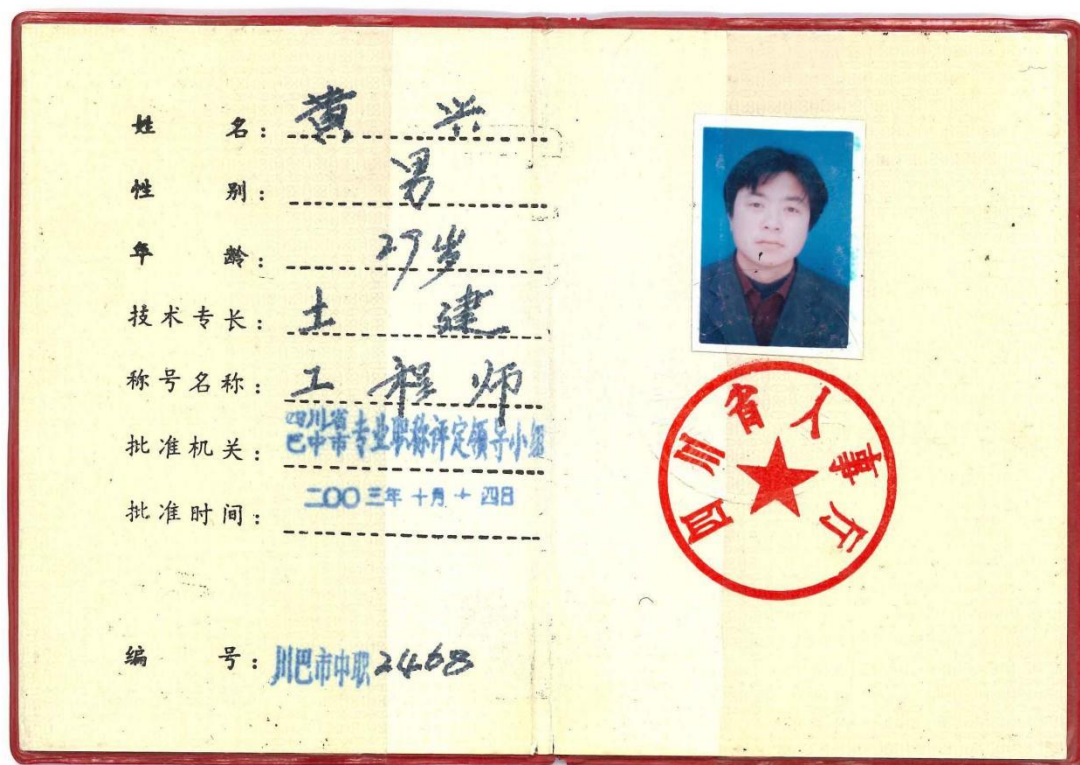 姓 名: 黄 兴
性 别: 男
年 龄: 27岁
技术专长: 土 建
称号名称: 工 程 师
批准机关: 四川省巴中市专业职称评定领导小组
批准时间: 二OO三年十月十四日
编 号: 川巴市中职2468
四川省人事厅